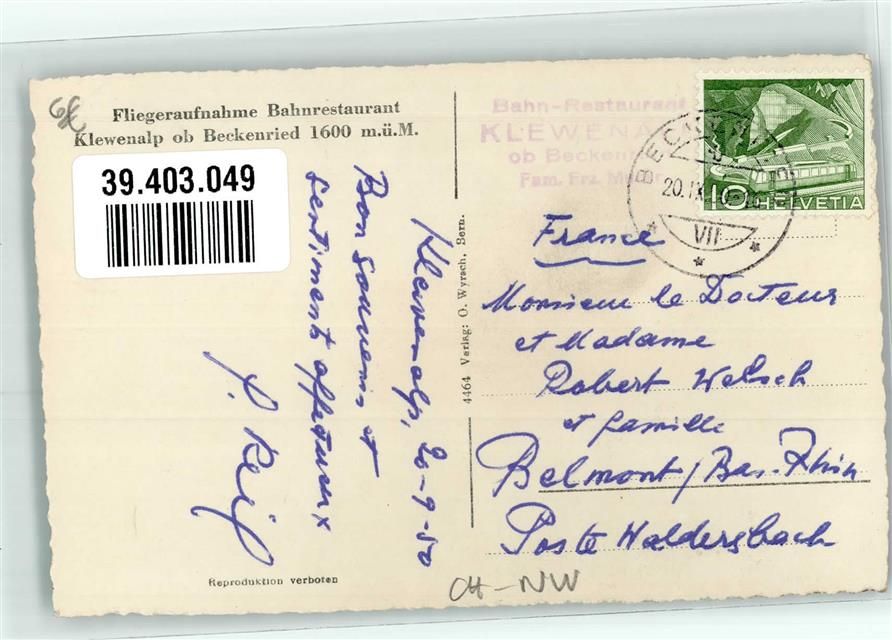 Fliegeraufnahme Bahnrestaurant
Klewenalp ob Beckenried 1600 m.ü.M.
39.403.049
Klewenalp, 20-9-50
Bon souvenir et
sentiments affectueux
Reproduktion verboten
4464 Verlag: O. Wyrsch, Bern.
Bahn-Restaurant
KLEWENALP
ob Beckenried
Fam. Frz.
BECKENRIED
20.IX.50
VII
10 HELVETIA
France
Monsieur le Docteur
et Madame
Robert Welsch
et famille
Belmont / Bas-Rhin
Poste Waldersbach
CH-NW